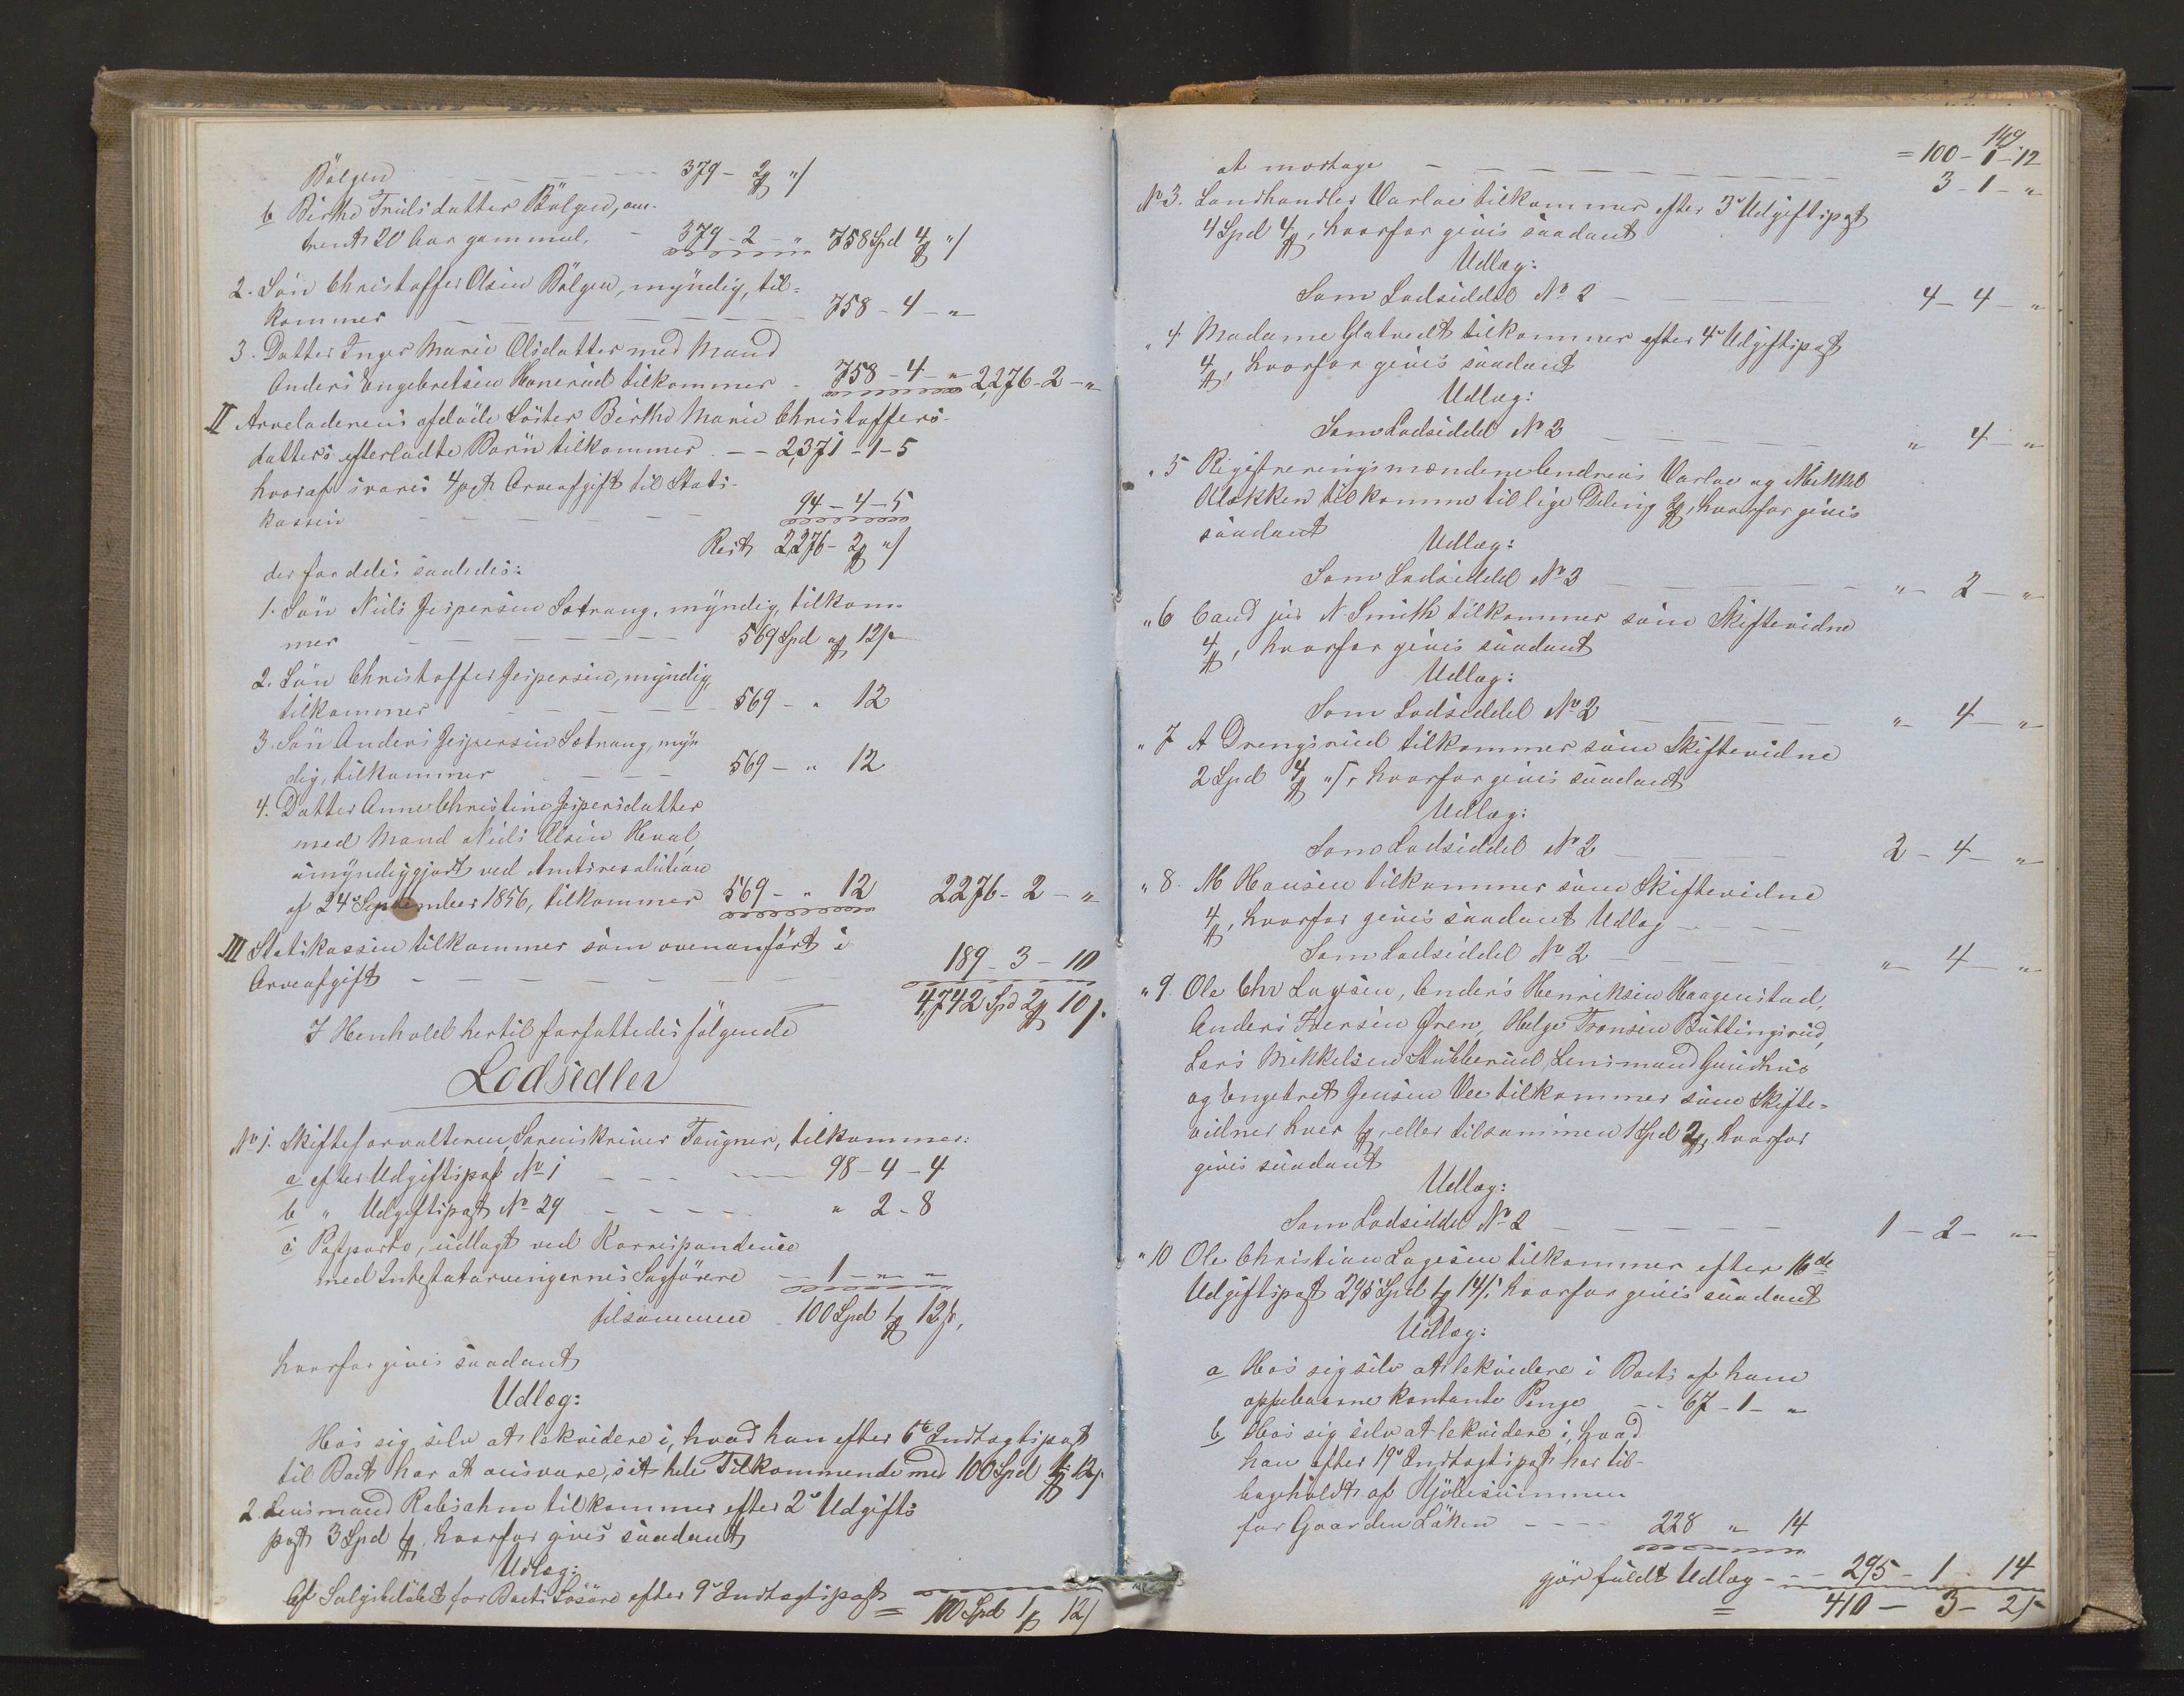 Bölgen — — — — 379 - 2 "
b Birthe Trulsdatter Bölgen, om-
trent 20 Aar gammel. - 379 - 2 - " 758 Spd 4 "
2. Sön Christoffer Olsen Bölgen, myndig, til-
kommer — — — — 758 - 4 - "
3. Datter Inger Marie Olsdatter med Mand
Anders Engebretsen Honerud tilkommer - 758 - 4 - " 2,276 - 2 - "
II Arveladerens afdöde Söster Birthe Marie Christoffers-
datters efterladte Börn tilkommer - - 2,371 - 1 - 5
hvoraf svares 4 pCt Arveafgift til Stats-
kassen — — — — 94 - 4 - 5
Rest 2276 - 2 "
der fordeles saaledes:
1. Sön Niels Jespersen Sætrang, myndig, tilkom-
mer — — — — 569 Spd " 12 s
2. Sön Christoffer Jespersen, myndig,
tilkommer — — — 569 - " 12
3. Sön Anders Jespersen Sætrang, myn
dig, tilkommer — — — 569 - " 12
4. Datter Anne Christine Jespersdatter
med Mand Niels Olsen Hval,
umyndiggjort ved Amtsresolution
af 24de September 1856, tilkommer 569 - " 12 2276 - 2 - "
III Statskassen tilkommer som ovenanfört i
Arveafgift — — — — 189 - 3 - 10
4,742 Spd 2 10 s.
I Henhold hertil forfattedes fölgende
Lodsedler
No 1. Skifteforvalteren, Sorenskriver Taugner, tilkommer:
a efter Udgiftspost No 1 — — — 98 - 4 - 4
b " Udgiftspost No 29 — — — " 2 - 8
c Postporto, udlagt ved Korrespondence
med Intestatarvingernes Sagförere - 1 - " - "
tilsammen - 100 Spd 1 12 s,
hvorfor gives saadant
Udlæg:
Hos sig selv at lekvidere i, hvad han efter 6te Indtægtspost
til Boet har at ansvare, sit hele Tilkommende med 100 Spd 1 12 s.
2. Lensmand Rabsahm tilkommer efter 2de Udgifts
post 3 Spd 1, hvorfor gives saadant
Udlæg:
Af Salgsbelöbet for Boets Lösöre efter 9de Indtægtspost = 100 Spd 1 12 s
149.
at modtage — — — — = 100 - 1 - 12
3 - 1 - "
No 3. Landhandler Varloe tilkommer efter 3de Udgiftspost
4 Spd 4, hvorfor gives saadant
Udlæg:
Som Lodseddel No 2 — — — 4 - 4 - "
" 4 Madame Glatvedt tilkommer efter 4de Udgiftspost
4, hvorfor gives saadant
Udlæg:
Som Lodseddel No 2 — — — " 4 - "
" 5 Registreringsmændene Endreas Varloe og Mikkel
Ulækken tilkomme til lige Deling 2, hvorfor gives
saadant
Udlæg:
Som Lodseddel No 2 — — — " - 2 - "
" 6 Cand jur N. Smith tilkommer som Skiftevidne
4, hvorfor gives saadant
Udlæg:
Som Lodseddel No 2 — — — " - 4 - "
" 7 A Drengsrud tilkommer som Skiftevidne
2 Spd 4 " s, hvorfor gives saadant
Udlæg:
Som Lodseddel No 2 — — — 2 - 4 - "
" 8. M Hansen tilkommer som Skiftevidne
4, hvorfor gives saadant Udlæg - - - -
Som Lodseddel No 2 — — — " - 4 - "
" 9. Ole Chr Lagesen, Anders Henriksen Haagenstad,
Anders Iversen Ören, Helge Tronsen Buttingsrud,
Lars Mikkelsen Stubberud, Lensmand Gundhus
og Engebret Jensen Vee tilkommer som Skifte-
vidner hver 1, eller tilsammen 1 Spd 2, hvorfor
gives saadant
Udlæg:
Som Lodseddel No 2 — — — 1 - 2 - "
" 10 Ole Christian Lagesen tilkommer efter 16de
Udgiftspost 295 Spd 1 14 s, hvorfor gives saadant
Udlæg:
a Hos sig selv at lekvidere i Boets af ham
oppebaarne kontante Penge - - 67 - 1 - "
b Hos sig selv at lekvidere i, hvad
han efter 19de Indtægtspost har til-
bageholdt af Kjöbesummen
for Gaarden Löken - - - - 228 " 14
gjör fuldt Udlæg - - - 295 - 1 - 14
= 410 - 3 - 2 s